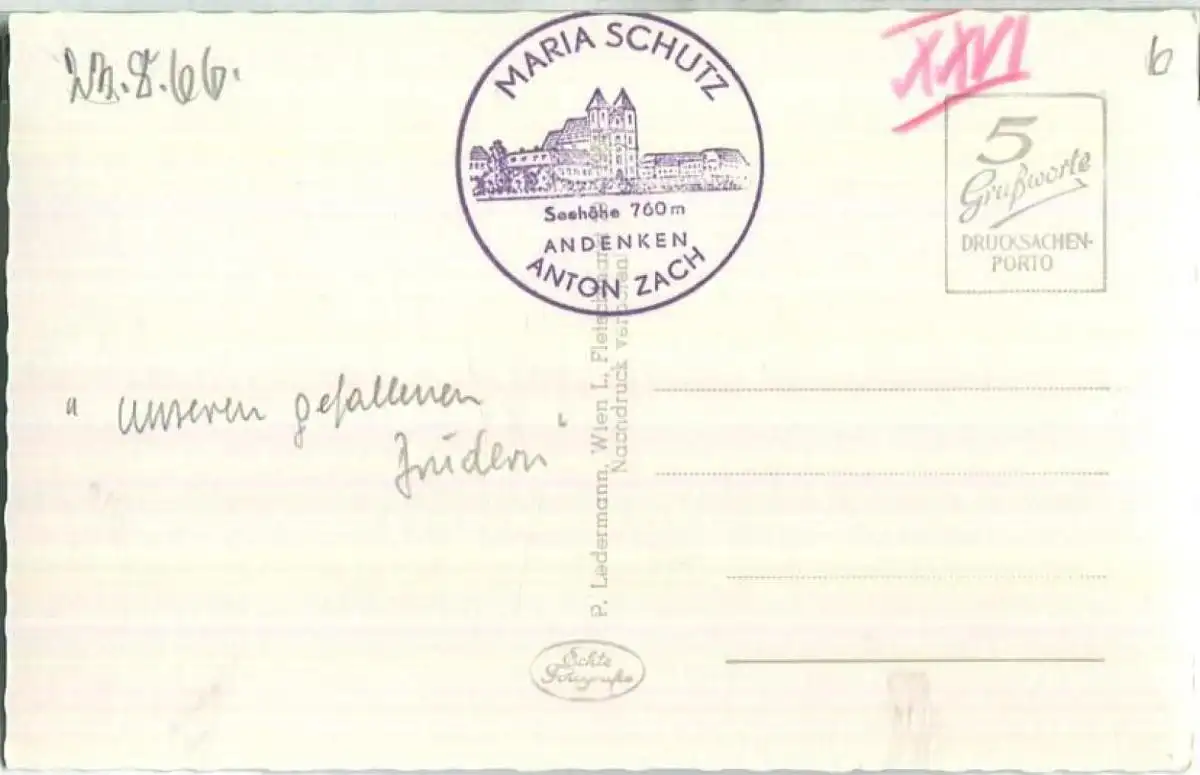 23.8.66.
MARIA SCHUTZ
Seehöhe 760m
ANDENKEN
ANTON ZACH
XXVI
6
5
Grußworte
DRUCKSACHEN-
PORTO
" unseren gefallenen
Brüdern "
P. Ledermann, Wien I., Fleischmarkt
Nachdruck verboten
Echte
Fotografie